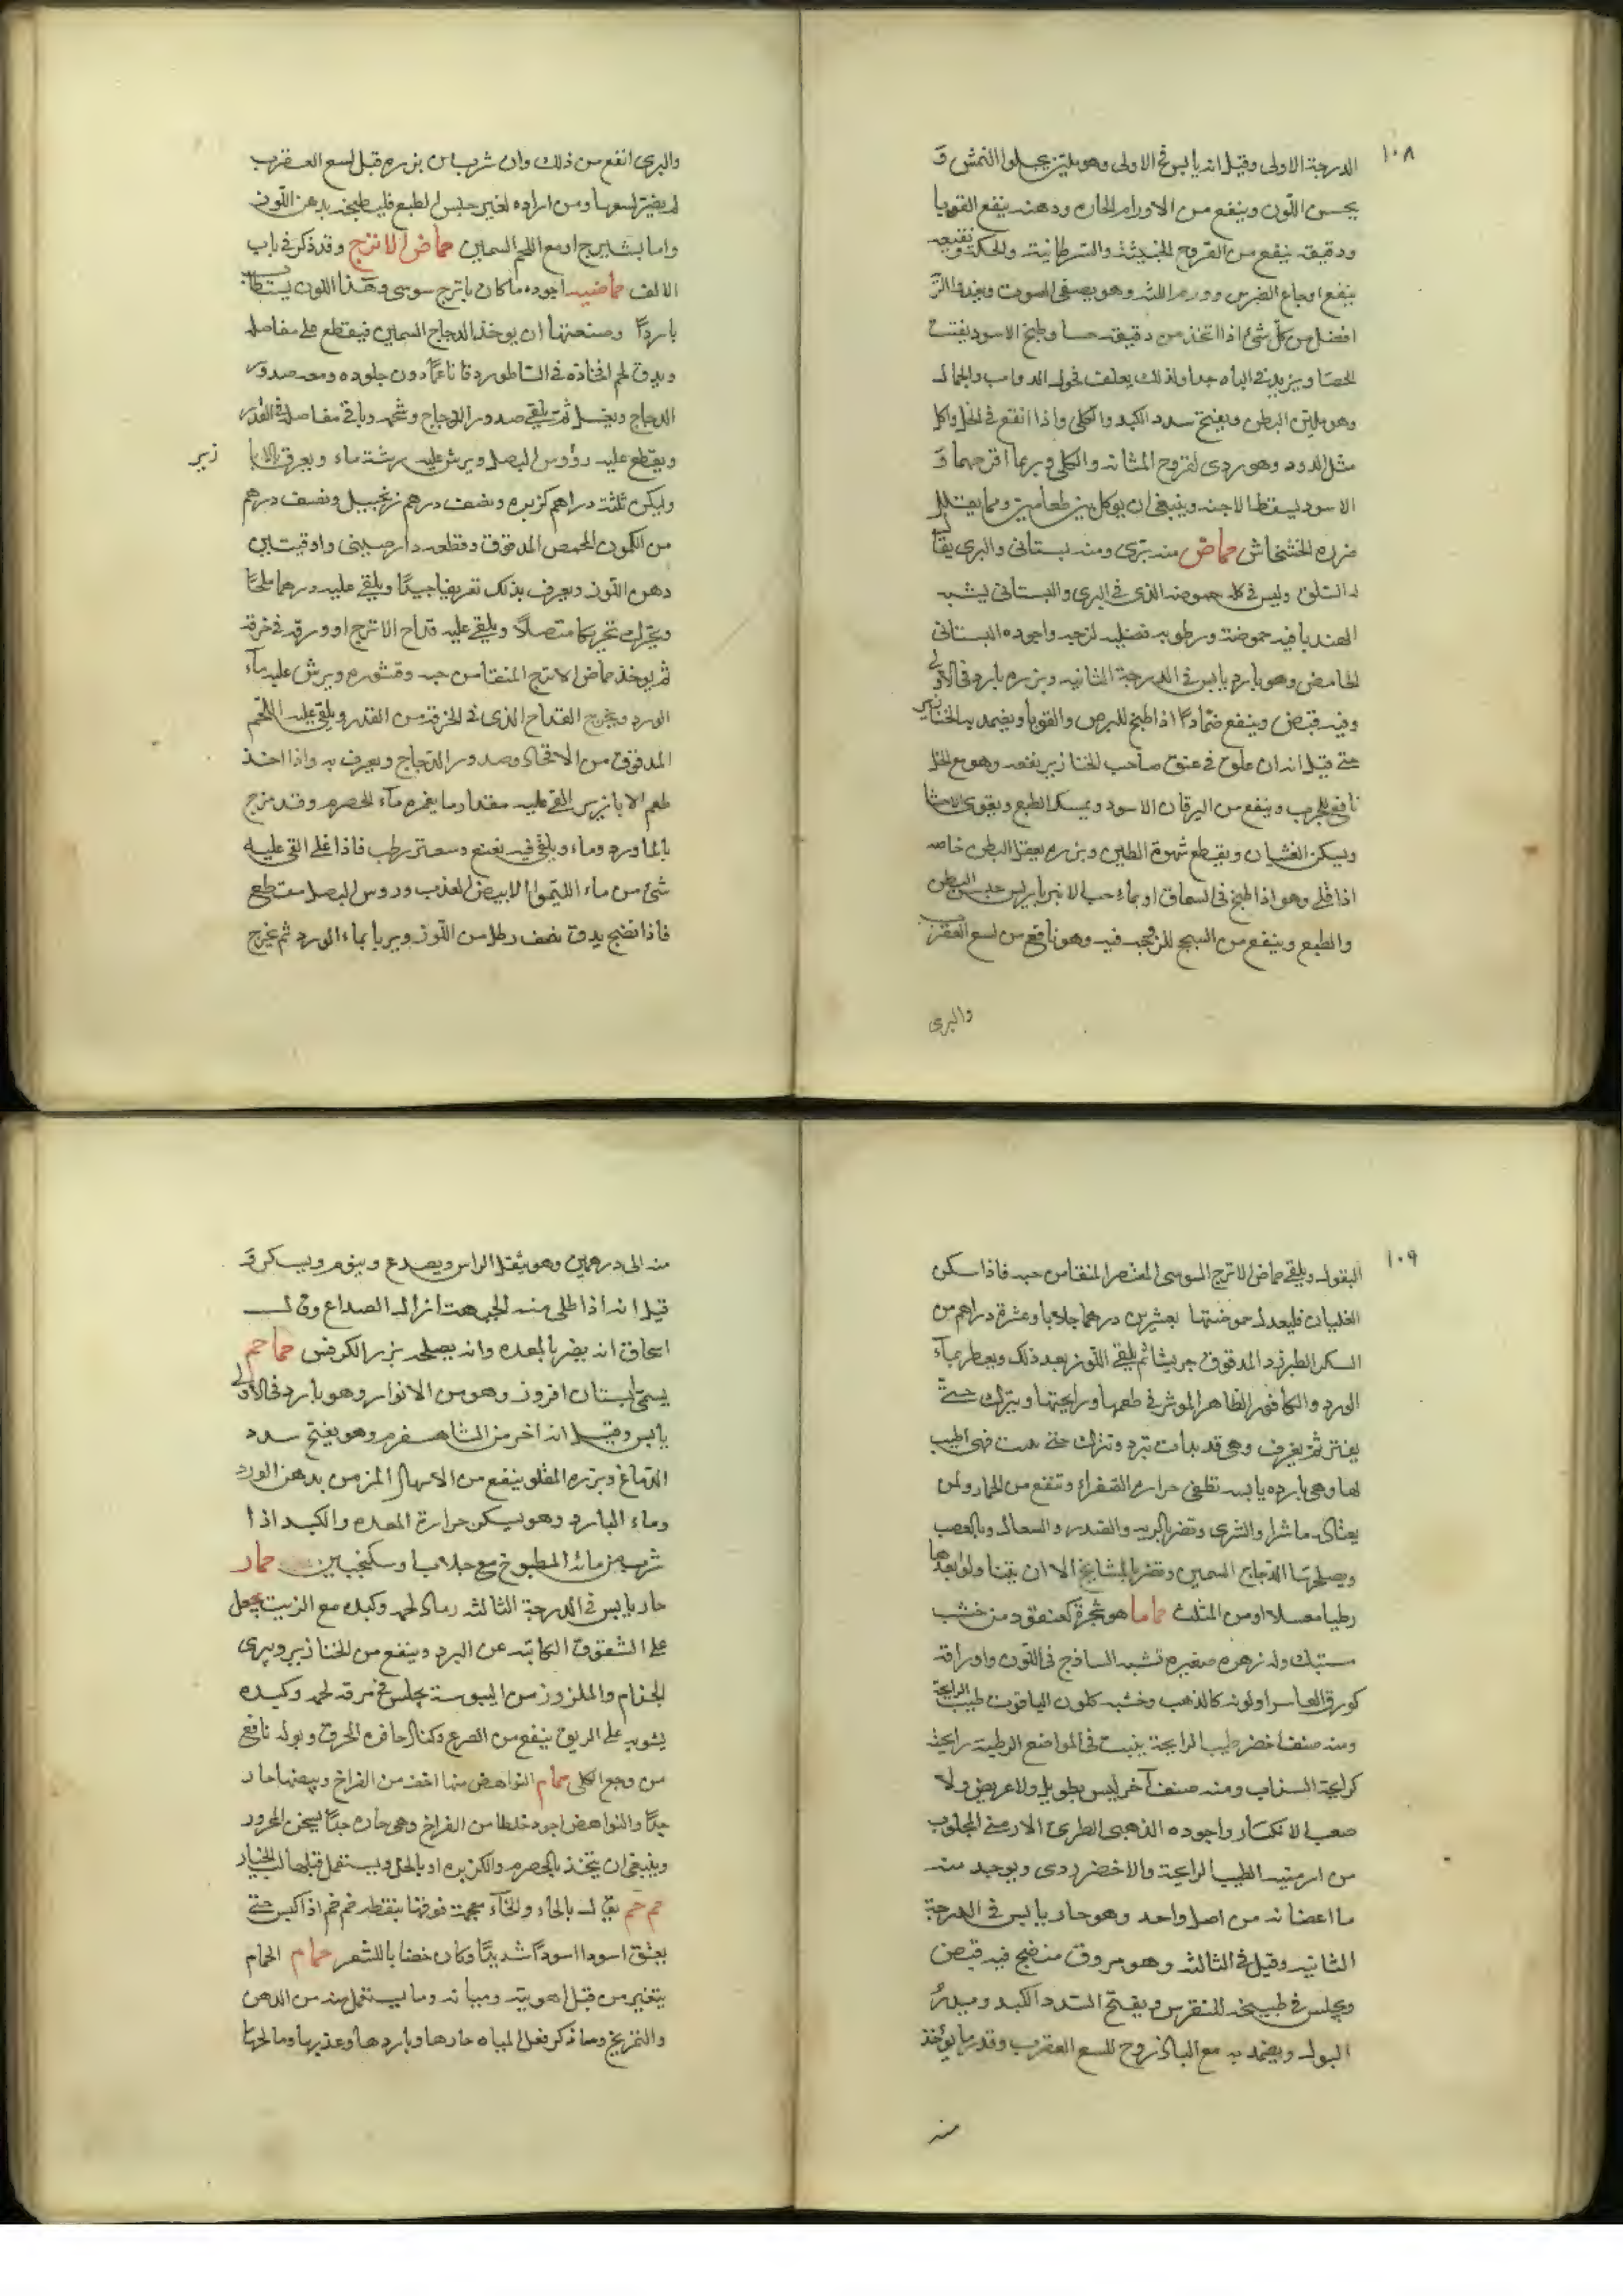 ١٠٨
الدرجة الاولى وقيل انه يابس في الاولى وهو ملين يجلوا النمش و
يحسن اللون وينفع من الاورام الحاره ودهنه ينفع القوبا
ودقيقه ينفع من القروح الخبيثة والسرطانية والحكة ونقيعه
ينفع اوجاع الضرس وورم اللثه وهو يصفى الصوت ويغذوا الر
افضل من كل شئ اذا اتخذ من دقيقه حسا وطبخ الاسود يفتت
الحصا ويزيد في الباه جدا ولذلك يعلف فحول الدواب والجمال
وهو يلين البطن ويفتح سدد الكبد والكلى واذا انقع في الخل واكل
مثل الدود وهو ردى لقروح المثانه والكلى وربما اقرحهما و
الاسود يسقط الاجنه وينبغي ان يوكل بين طعامين ومما يقلل
ضرره الخشخاش حماض منه برى ومنه بستانى والبرى يقا
له السلق وليس في كله حموضه الذى في البرى والبستانى يشبه
الهندبا فيه حموضة ورطوبه فضليه لزجه واجوده البستانى
الحامض وهو بارد يابس في الدرجة الثانيه وبزره بارد في الاولى
وفيه قبض وينفع ضمادا اذا طبخ للبرص والقوبا ويضمد به الخنازير
حتى قيل انه ان علق في عنق صاحب الخنازير نفعه وهو مع الخل
نافع للجرب وينفع من اليرقان الاسود ويمسك الطبع ويقوى الاحشا
ويسكن الغشيان ويقطع شهوة الطين وبزره يعقل البطن خاصه
اذا قلى وهو اذا طبخ في السماق او بماء حب الانبرباريس حبس البطن
والطبع وينفع من السحج للزوجه فيه وهو نافع من لسع العقرب
والبرى
والبرى انفع من ذلك وان شرب من بزره قبل لسع العقرب
لم يضر لسعها ومن اراده لغير حبس الطبع فليطبخه بدهن اللوز
واما بشيرج او مع اللحم السمين حماض الاترج وقد ذكر في باب
الالف حماضيه اجوده ما كان باترج سوسى وهذا اللون يستطاب
باردا وصنعتها ان يوخذ الدجاج السمين فيقطع على مفاصله
ويدق لحم افخاذه في الساطور دقا ناعما دون جلوده ومعه صدور
الدجاج ويغسل ثم يلقى صدور الدجاج وشحمه وباقي مفاصله في القدر
ويقطع عليه رؤوس البصل ويرش عليه رشة ماء ويعرق بالابا
زير
وليكن ثلثة دراهم كزبره ونصف درهم زنجبيل ونصف درهم
من الكمون المحمص المدقوق وقطعه دارصينى واوقيتين
دهن اللوز ويعرق بذلك تعريقا جيدا ويلقى عليه درهما ملحا
ويحرك تحريكا متصلا ويلقى عليه قداح الاترج او ورقه في خرقه
ثم يوخذ حماض الاترج المنقا من حبه وقشوره ويرش عليه ماء
الورد ويخرج القداح الذى في الخرقه من القدر ويلقى عليه اللحم
المدقوق من الافخاذ وصدور الدجاج ويعرق به واذا اخذ
طعم الابازير القى عليه مقدار ما يغمره ماء الحصرم وقد مزج
بالماورد وماء ويلقى فيه نعنع وسعتر رطب فاذا غلى القى عليه
شئ من ماء الليموا الابيض العذب وروس البصل مقطع
فاذا نضج يدق نصف رطل من اللوز ويربا بماء الورد ثم يخرج
١٠٩
البقول ويلقى حماض الاترج السوسى المعتصر المنقا من حبه فاذا سكن
الغليان فليعدل حموضتها بعشرين درهما جلابا وعشرة دراهم من
السكر الطبرزد المدقوق جريشا ثم يلقى اللوز بعد ذلك ويعطر بماء
الورد والكافور الظاهر الموثر في طعمها ورايحتها ويترك حتى
يفتر ثم يغرف وهى قد بدات تبرد وتترك حتى هدت فهى اطيب
لها وهى بارده يابسه تطفى حرارة الصفراء وتنفع من الخمار ولمن
يعتاده ماشرا والشرى وتضر بالريه والصدر والسعال وبالعصب
ويصلحها الدجاج السمين وتضر بالمشايخ الا ان يتنا ولوا بعدها
رطبا معسلا او من المثلث حماما هو شجرة كعنقود من خشب
مشتبك وله زهره صغيره تشبه الساذج في اللون واوراقه
كورق الفاسرا ولونه كالذهب وخشبه كلون الياقوت طيب الرايحة
ومنه صنف اخضر طيب الرايحة ينبت في المواضع الرطبة رايحته
كرايحة السذاب ومنه صنف آخر ليس بطويل ولا عريض ولا
صعب الانكسار واجوده الذهبى الطرى الارمنى المجلوب
من ارمنيه الطيب الرايحة والاخضر ردى ويوجد منه
ما اعضانه من اصل واحد وهو حار يابس في الدرجة
الثانيه وقيل في الثالثه وهو مروق منضج فيه قبض
ويجلس في طبيخه للنقرس ويفتح السدد الكبد ويدر
البول ويضمد به مع الباذروح للسع العقرب وقدر ما يؤخذ
منه
منه الى درهمين وهو يثقل الراس ويصدع وينوم ويسكر و
قيل انه اذا طلى منه الجبهت ازال الصداع وقال
اسحاق انه يضر بالمعده وانه يصلحه بزر الكرفس حماحم
يسمى بستان افروز وهو من الانوار وهو بارد في الاولى
يابس وقيل انه اخر من الشاهسفرم وهو يفتح سدد
الدماغ وبزره المقلو ينفع من الاسهال المزمن بدهن الورد
وماء البارد وهو يسكن حرارة المعده والكبد اذا
شرب من مائه المطبوخ مع جلاب وسكنجبين حمار
حار يابس في الدرجة الثالثه رماد لحمه وكبده مع الزيت يجعل
على الشقوق الكاينه عن البرد وينفع من الخنازير ويبرى
الجذام والملزوز من اليبوسة يجلس في مرقه لحمه وكبده
يشويه على الريق ينفع من الصرع وكذلك حافره المحرق وبوله نافع
من وجع الكلى حمام النواهض منها اخف من الفراخ وبيضها حار
جدا والنواهض اجود خلطا من الفراخ وهى حاره جدا يسخن المحرور
وينبغى ان يتخذ بالحصرم والكزبره او بالخل ويستعمل قبلها لب الخيار
حم حم يقال بالحاء والخاء معجمت فوقها بنقطه خم خم اذا كبس حتى
يعتق اسود اسودا شديدا وكان خضابا للشعر حمام الحمام
يتغير من قبل اهويته ومياهه وما يستعمل منه من الدهن
والتمريخ وما ذكر فعل المياه حارها وباردها وعذبها ومالحها